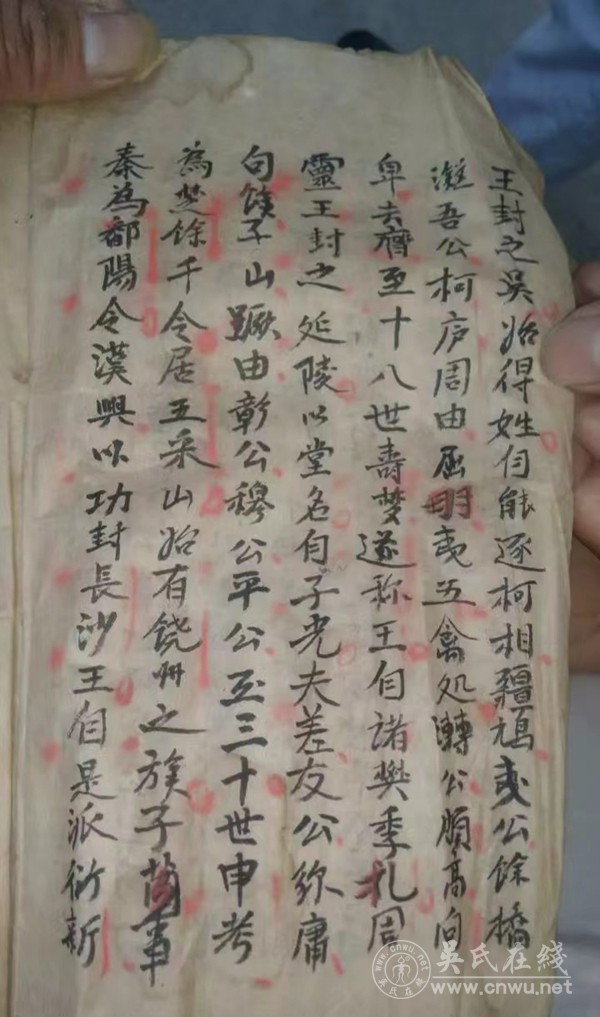 王封之吳始得姓自能逐柯相彊鳩夷公餘橋
濨吾公柯庐周由屈明夷五禽処轉公頗髙向
卑去齊至十八世壽梦遂称王自諸樊季札周
靈王封之延陵以堂名自子光夫差友公弥庸
句餘子山蹶由彰公穆公平公至三十世申考
為楚餘干令居五采山始有饶州之族子芮事
秦為鄱陽令漢興以功封長沙王自是派衍新
吳氏在綫
www.cnwu.net